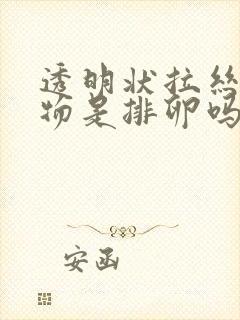 透明状拉丝
物是排卵吗
安函